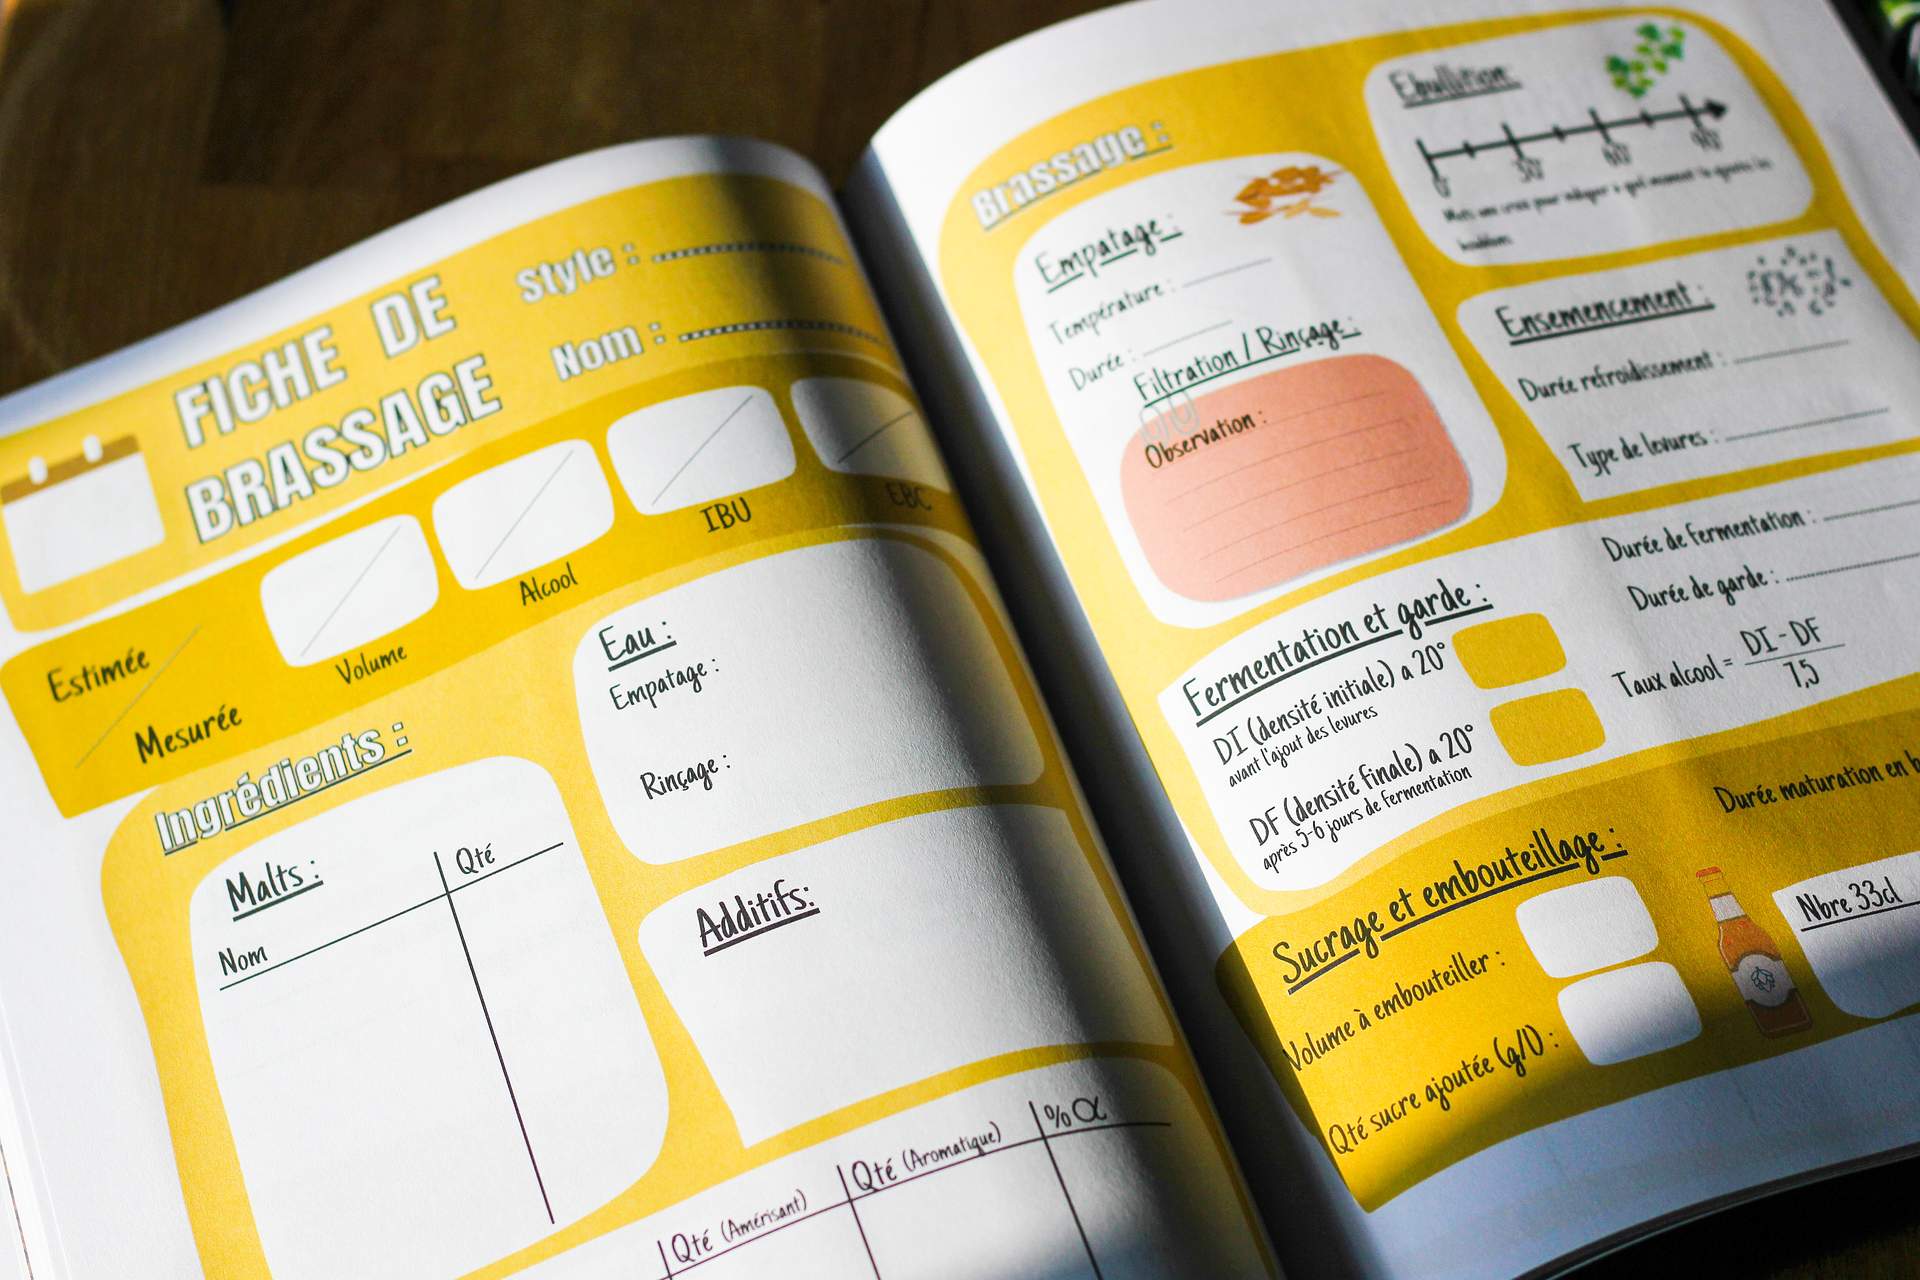 FICHE DE
BRASSAGE
Style :
Nom :
Estimée
Mesurée
Volume
Alcool
IBU
EBC
Ingrédients :
Malts :
Nom
Qté
Eau :
Empatage :
Rinçage :
Additifs:
Qté (Amérisant)
Qté (Aromatique)
%α
Brassage :
Empatage :
Température :
Durée :
Filtration / Rinçage :
Observation :
Ebullition:
0' 30' 60' 90'
Mets une croix pour indiquer à quel moment tu ajoutes les
houblons
Ensemencement :
Durée refroidissement :
Type de levures :
Fermentation et garde :
DI (densité initiale) a 20°
avant l'ajout des levures
DF (densité finale) a 20°
après 5-6 jours de fermentation
Durée de fermentation :
Durée de garde :
Taux alcool = DI - DF
7,5
Sucrage et embouteillage :
Volume à embouteiller :
Qté sucre ajoutée (g/l) :
Durée maturation en b
Nbre 33cl